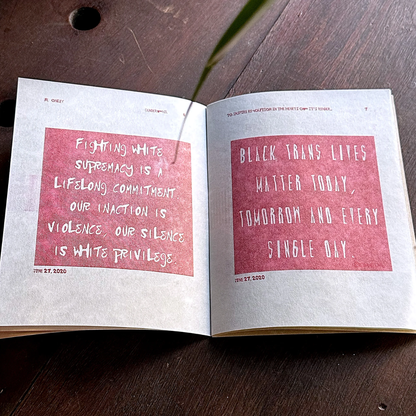 FIGHTING WHITE
SUPREMACY IS A
LIFELONG COMMITMENT
OUR INACTION IS
VIOLENCE. OUR SILENCE
IS WHITE PRIVILEGE.
JUNE 27, 2020
7
BLACK TRANS LIVES
MATTER TODAY,
TOMORROW AND EVERY
SINGLE DAY.
JUNE 27, 2020